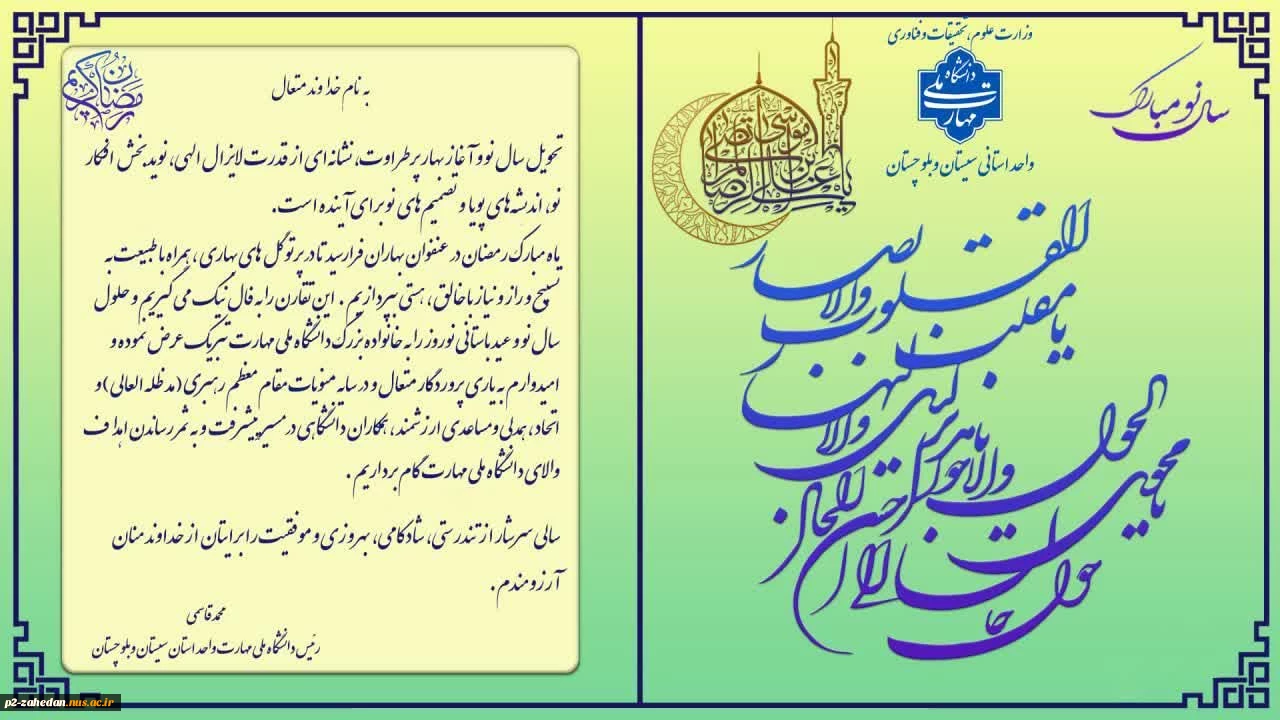 وزارت علوم، تحقیقات و فناوری
دانشگاه
ملی
مهارت
واحد استانی سیستان و بلوچستان
سال نو مبارک
یا مقلب القلوب والابصار
یا مدبر اللیل والنهار
یا محول الحول والاحوال
حول حالنا الی احسن الحال
رمضان کریم
به نام خداوند متعال
تحویل سال نو و آغاز بهار پر طراوت، نشانه ای از قدرت لایزال الهی، نوید بخش افکار
نو، اندیشه های پویا و تصمیم های نو برای آینده است.
ماه مبارک رمضان در عنفوان بهاران فرا رسید تا در پرتو گل های بهاری ، همراه با طبیعت به
تسبیح و راز و نیاز با خالق ، هستی بپردازیم . این تقارن را به فال نیک می گیریم و حلول
سال نو و عید باستانی نوروز را به خانواده بزرگ دانشگاه ملی مهارت تبریک عرض نموده و
امیدوارم به یاری پروردگار متعال و در سایه منویات مقام معظم رهبری (مد ظله العالی) و
اتحاد ، همدلی و مساعدی ارزشمند ، همکاران دانشگاهی در مسیر پیشرفت و به ثمر رساندن اهداف
والای دانشگاه ملی مهارت گام برداریم .
سالی سرشار از تندرستی، شادکامی، بهروزی و موفقیت را برایتان از خداوند منان
آرزومندم .
محمد قاسمی
رئیس دانشگاه ملی مهارت واحد استان سیستان و بلوچستان
p2-zahedan.nus.ac.ir